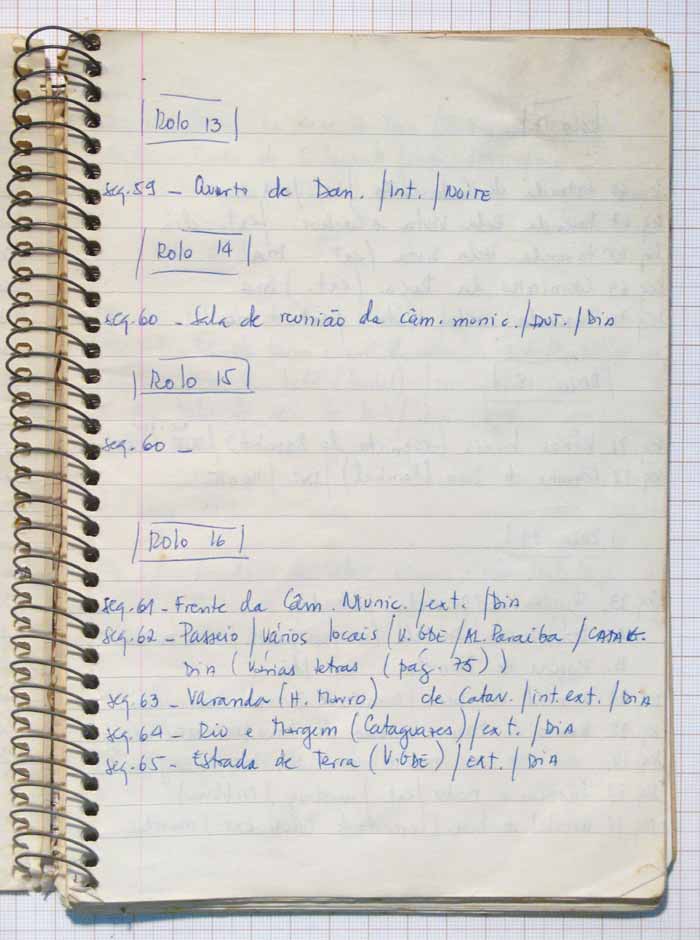 Rolo 13
seq. 59 - Quarto de Dan. / Int. / NOITE
Rolo 14
seq. 60 - Sala de reunião da câm. munic. / INT. / DIA
Rolo 15
seq. 60 -
Rolo 16
seq. 61 - Frente da Câm. Munic. / ext. / DIA
seq. 62 - Passeio / Vários locais (V. GDE / M. Paraiba / CATAG.
DIA (várias letras (pág. 75))
seq. 63 - Varanda (H. Mauro) de Catag. / int. ext. / DIA
seq. 64 - Rio e Margem (Cataguases) / ext. / DIA
seq. 65 - Estrada de Terra (V. GDE) / ext. / DIA